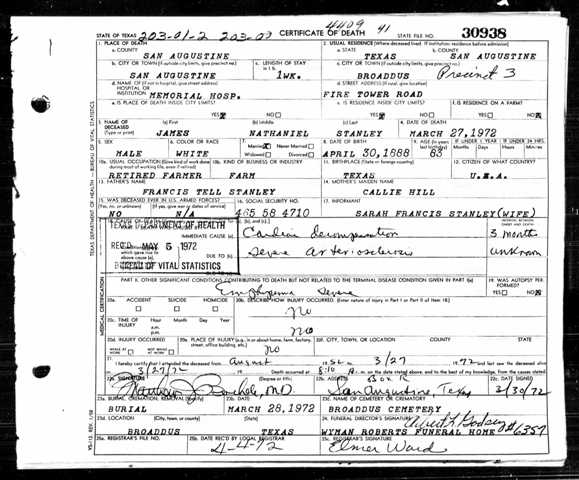 4409 41
STATE OF TEXAS 203-01-2 203-00 CERTIFICATE OF DEATH STATE FILE NO. 30938
1. PLACE OF DEATH 2. USUAL RESIDENCE (Where deceased lived. If institution: residence before admission)
a. COUNTY a. STATE b. COUNTY
SAN AUGUSTINE TEXAS SAN AUGUSTINE
b. CITY OR TOWN (If outside city limits, give precinct no.) c. LENGTH OF STAY c. CITY OR TOWN (If outside city limits, give precinct no.)
SAN AUGUSTINE 1wk. BROADDUS Precinct 3
d. NAME OF HOSPITAL OR INSTITUTION d. STREET ADDRESS
MEMORIAL HOSP. FIRE TOWER ROAD
e. IS PLACE OF DEATH INSIDE CITY LIMITS? e. IS RESIDENCE INSIDE CITY LIMITS? f. IS RESIDENCE ON A FARM?
YES NO YES NO YES NO
3. NAME OF DECEASED (a) First (b) Middle (c) Last 4. DATE OF DEATH
(Type or print) JAMES NATHANIEL STANLEY MARCH 27,1972
5. SEX 6. COLOR OR RACE 7. Married Never Married 8. DATE OF BIRTH 9. AGE
MALE WHITE Widowed Divorced APRIL 30,1888 83
10a. USUAL OCCUPATION 10b. KIND OF BUSINESS OR INDUSTRY 11. BIRTHPLACE (State or foreign country) 12. CITIZEN OF WHAT COUNTRY?
RETIRED FARMER FARM TEXAS U.S.A.
13. FATHER'S NAME 14. MOTHER'S MAIDEN NAME
FRANCIS TELL STANLEY CALLIE HILL
15. WAS DECEASED EVER IN U.S. ARMED FORCES? 16. SOCIAL SECURITY NO. 17. INFORMANT
NO N/A 465 58 4710 SARAH FRANCIS STANLEY(WIFE)
TEXAS DEPARTMENT OF HEALTH
IMMEDIATE CAUSE (a) Cardiac decompensation 3 months
REC'D MAY 5 1972
DUE TO (b) Severe arteriosclerosis unknown
BUREAU OF VITAL STATISTICS
PART II. OTHER SIGNIFICANT CONDITIONS CONTRIBUTING TO DEATH BUT NOT RELATED TO THE TERMINAL DISEASE CONDITION GIVEN IN PART I(a) 19. WAS AUTOPSY PERFORMED?
Emphysema severe YES NO
20a. ACCIDENT SUICIDE HOMICIDE 20b. DESCRIBE HOW INJURY OCCURRED. (Enter nature of injury in Part I or Part II of item 18.)
no
20c. TIME OF INJURY Hour Month Day Year
a.m.
p.m. no
20d. INJURY OCCURRED 20e. PLACE OF INJURY 20f. CITY, TOWN, OR LOCATION COUNTY STATE
WHILE AT WORK NOT WHILE AT WORK no
21. I hereby certify that I attended the deceased from August 3/27 1972 and last saw the deceased alive
on 3/27/72 Death occurred at 8:10 A. m. on the date stated above, and to the best of my knowledge, from the causes stated.
22a. SIGNATURE (Degree or title) 22b. ADDRESS Box R 22c. DATE SIGNED
M.D. San Augustine, Texas 3/30/72
23a. BURIAL, CREMATION, REMOVAL 23b. DATE 23c. NAME OF CEMETERY OR CREMATORY
BURIAL MARCH 28,1972 BROADDUS CEMETERY
23d. LOCATION (City, town, or county) (State) 24. FUNERAL DIRECTOR'S SIGNATURE
BROADDUS TEXAS WYMAN ROBERTS FUNERAL HOME #6357
25a. REGISTRAR'S FILE NO. 25b. DATE REC'D BY LOCAL REGISTRAR 25c. REGISTRAR'S SIGNATURE
4-4-72 Elmer Ward